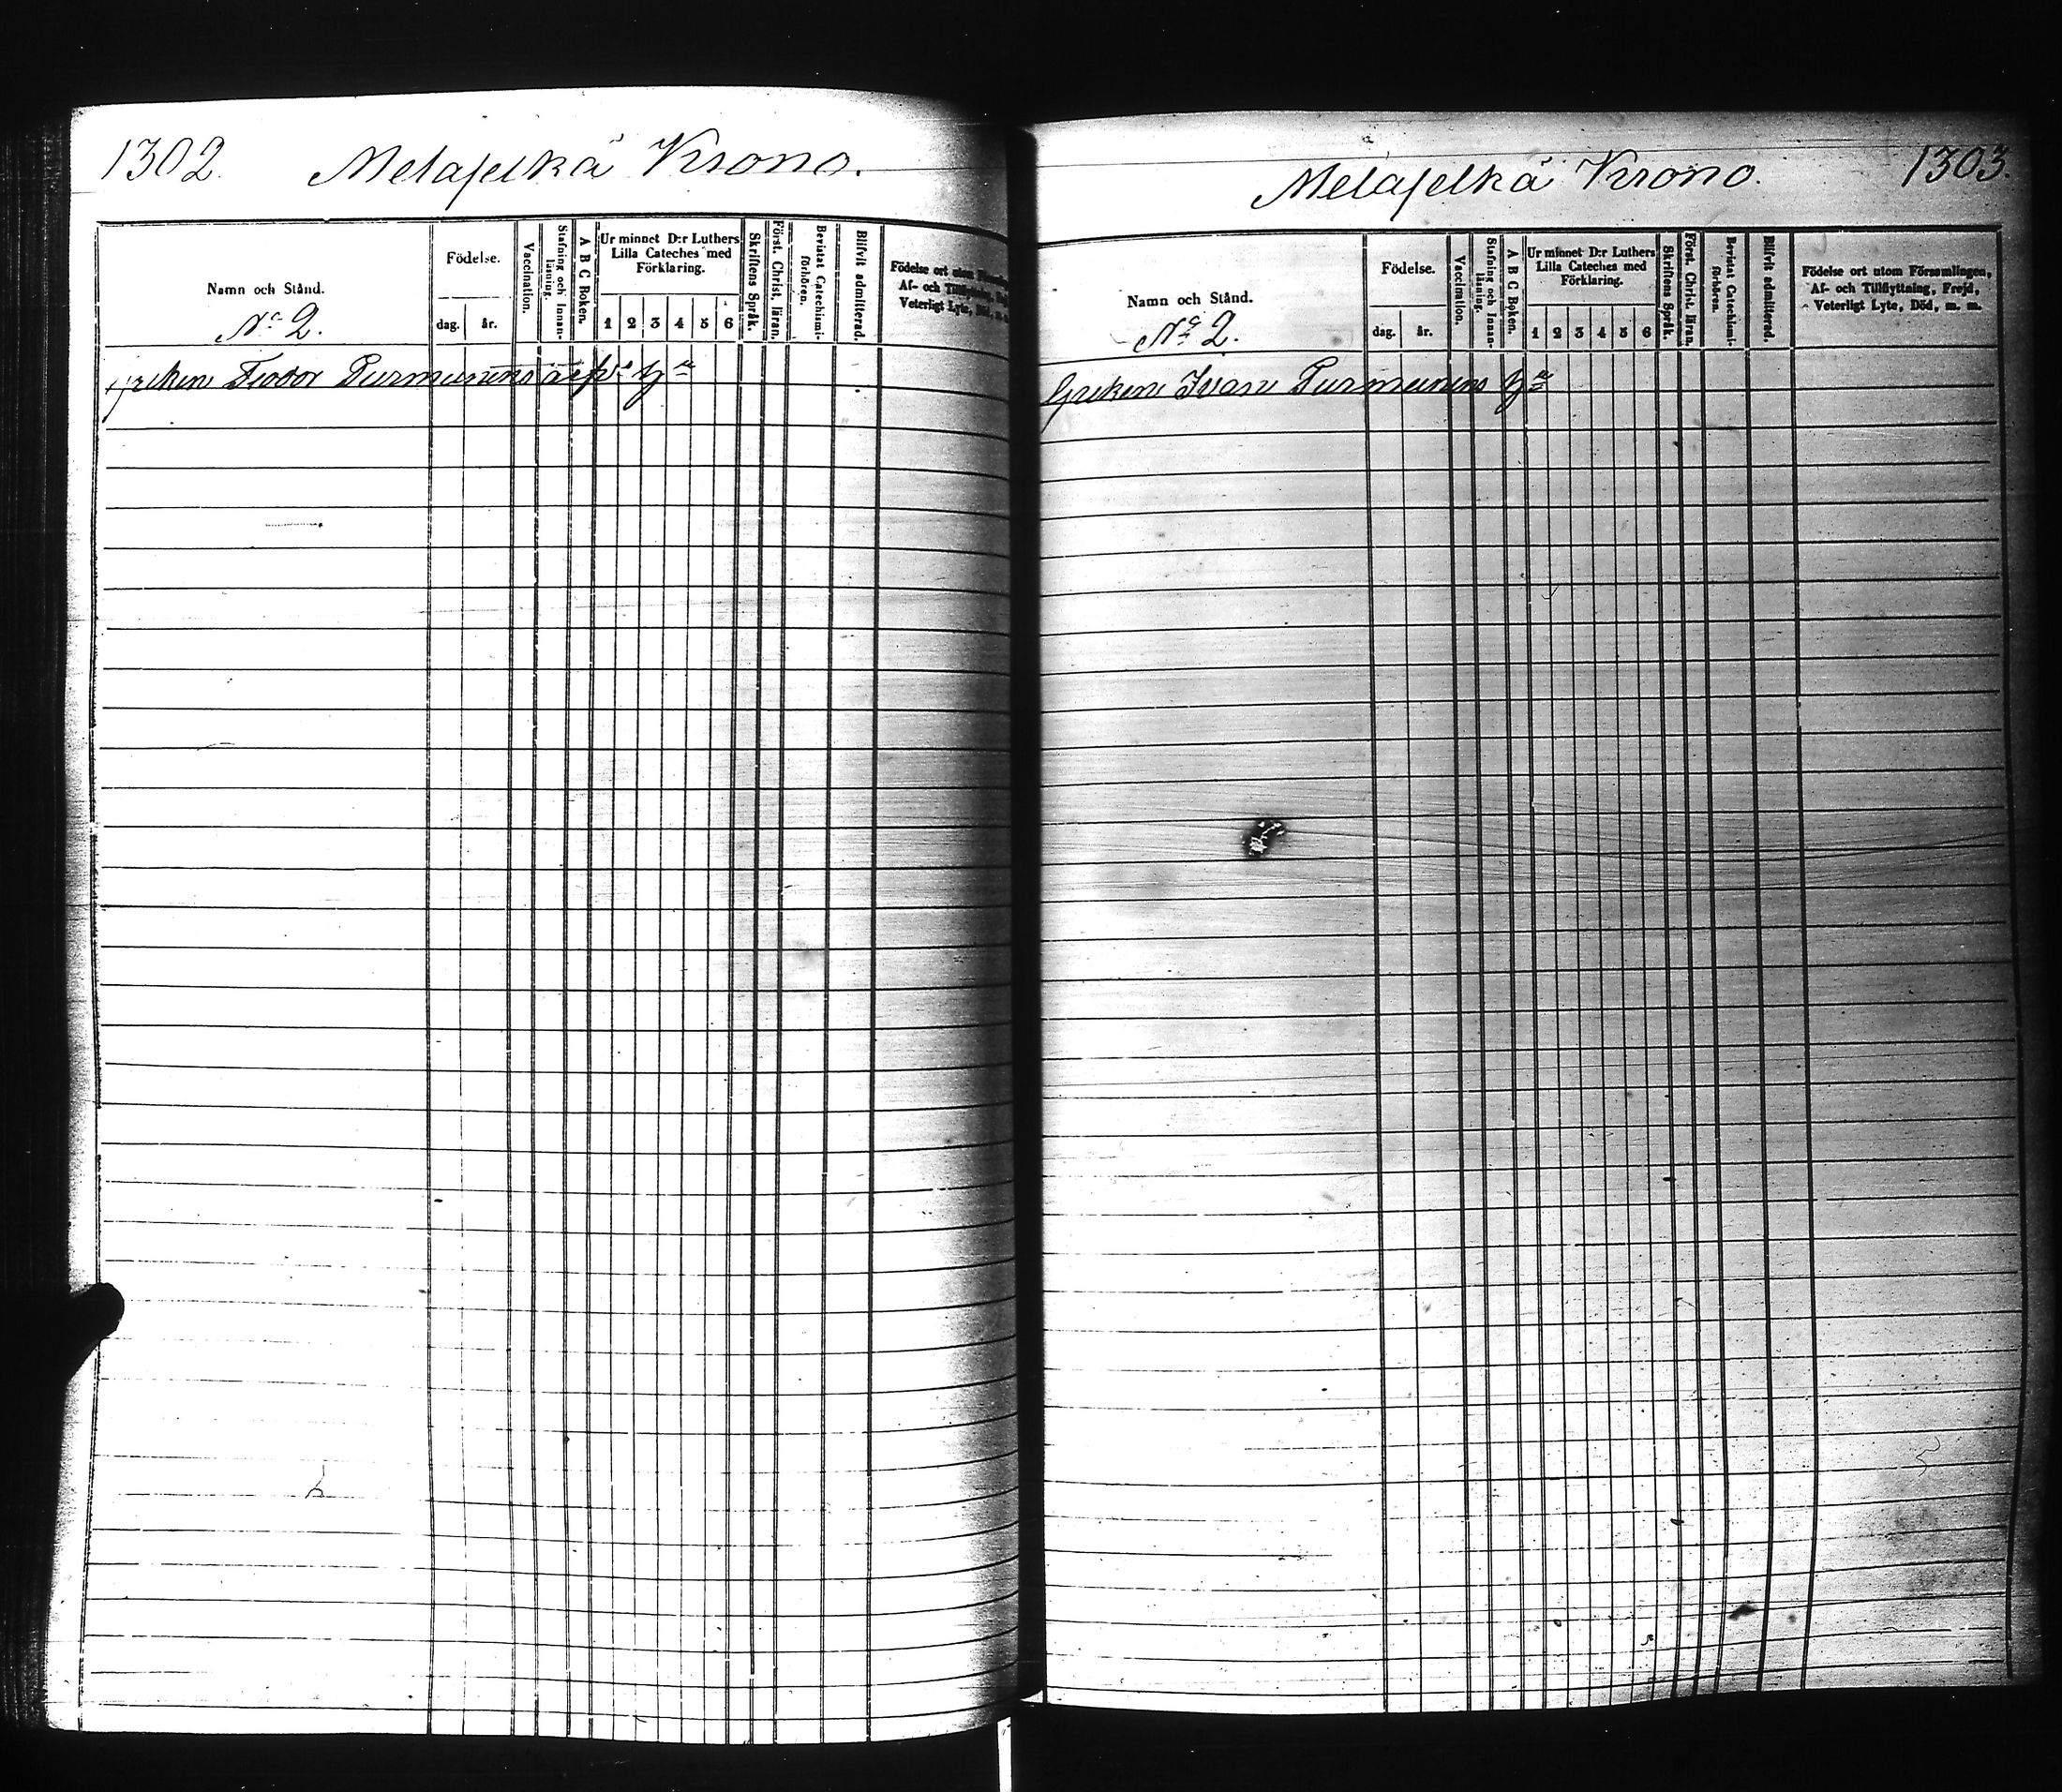 1302. Melaselkä Krono.
Namn och Stånd.
No 2.
Födelse.
dag. år.
Vaccination.
Stafning och Innanläsning.
A B C Boken.
Ur minnet D:r Luthers
Lilla Cateches med
Förklaring.
1 2 3 4 5 6
Skriftens Språk.
Först. Christ. läran.
Bevistat Catechismiförhören.
Blifvit admitterad.
Födelse ort utom
Af- och Tillflyttning,
Veterligt Lyte, Död, m. m.
Greken Feodor Purmunens
Melaselkä Krono. 1303.
Namn och Stånd.
No 2.
Födelse.
dag. år.
Vaccination.
Stafning och Innanläsning.
A B C Boken.
Ur minnet D:r Luthers
Lilla Cateches med
Förklaring.
1 2 3 4 5 6
Skriftens Språk.
Först. Christ. läran.
Bevistat Catechismiförhören.
Blifvit admitterad.
Födelse ort utom Församlingen,
Af- och Tillflyttning, Frejd,
Veterligt Lyte, Död, m. m.
Greken Ivan Purmunens